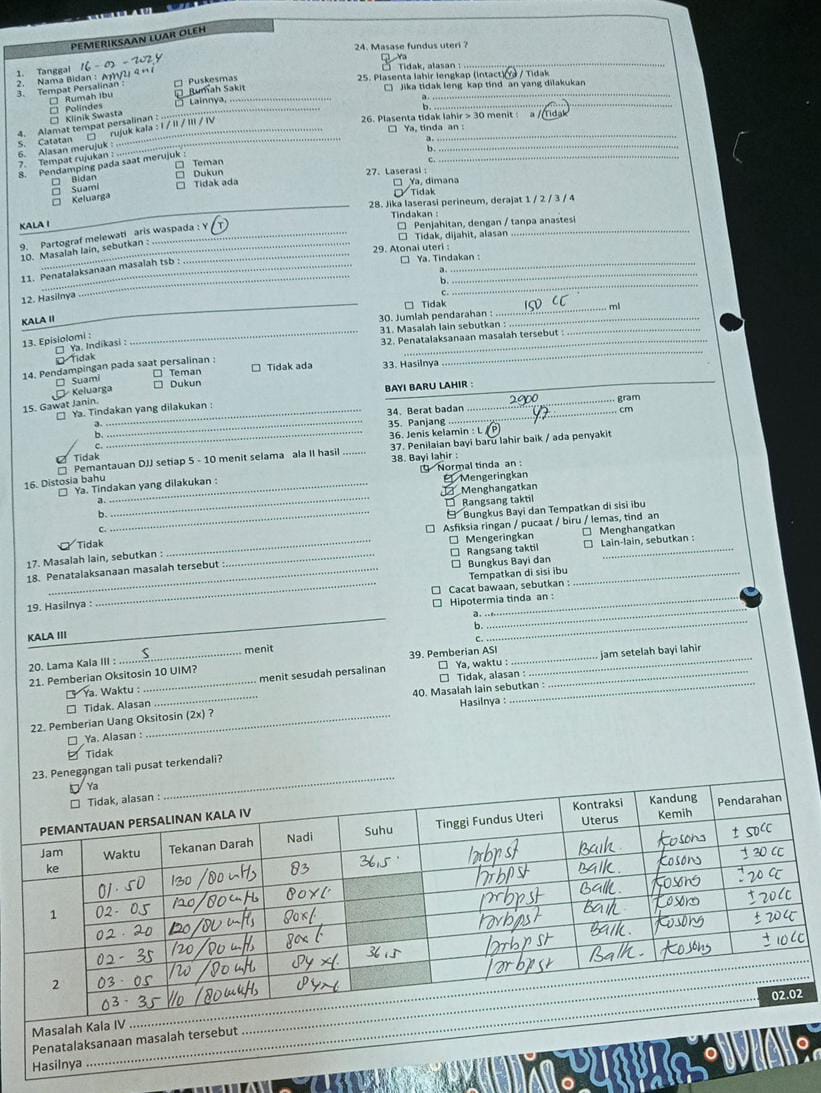 PEMERIKSAAN LUAR OLEH
1. Tanggal 16-02-2024
2. Nama Bidan :
3. Tempat Persalinan :
Rumah Ibu
Puskesmas
Polindes
Rumah Sakit
Klinik Swasta
Lainnya,
4. Alamat tempat persalinan :
5. Catatan rujuk kala : I / II / III / IV
6. Alasan merujuk :
7. Tempat rujukan :
8. Pendamping pada saat merujuk :
Bidan
Teman
Suami
Dukun
Keluarga
Tidak ada
KALA I
9. Partograf melewati aris waspada : Y / T
10. Masalah lain, sebutkan :
11. Penatalaksanaan masalah tsb :
12. Hasilnya
KALA II
13. Episiolomi :
Ya. Indikasi :
Tidak
14. Pendampingan pada saat persalinan :
Suami
Teman
Tidak ada
Keluarga
Dukun
15. Gawat Janin.
Ya. Tindakan yang dilakukan :
a.
b.
c.
Tidak
Pemantauan DJJ setiap 5 - 10 menit selama ala II hasil
16. Distosia bahu
Ya. Tindakan yang dilakukan :
a.
b.
c.
Tidak
17. Masalah lain, sebutkan :
18. Penatalaksanaan masalah tersebut :
19. Hasilnya :
KALA III
20. Lama Kala III : 5 menit
21. Pemberian Oksitosin 10 UIM?
Ya. Waktu : menit sesudah persalinan
Tidak. Alasan
22. Pemberian Uang Oksitosin (2x) ?
Ya. Alasan :
Tidak
23. Penegangan tali pusat terkendali?
Ya
Tidak, alasan :
24. Masase fundus uteri ?
Ya
Tidak, alasan :
25. Plasenta lahir lengkap (intact) Ya / Tidak
Jika tidak leng kap tind an yang dilakukan
a.
b.
26. Plasenta tidak lahir > 30 menit : a / Tidak
Ya, tinda an :
a.
b.
c.
27. Laserasi :
Ya, dimana
Tidak
28. Jika laserasi perineum, derajat 1 / 2 / 3 / 4
Tindakan :
Penjahitan, dengan / tanpa anastesi
Tidak, dijahit, alasan
29. Atonai uteri :
Ya. Tindakan :
a.
b.
c.
Tidak
30. Jumlah pendarahan : 150 cc ml
31. Masalah lain sebutkan :
32. Penatalaksanaan masalah tersebut :
33. Hasilnya
BAYI BARU LAHIR :
34. Berat badan 2900 gram
35. Panjang 47 cm
36. Jenis kelamin : L / P
37. Penilaian bayi baru lahir baik / ada penyakit
38. Bayi lahir :
Normal tinda an :
Mengeringkan
Menghangatkan
Rangsang taktil
Bungkus Bayi dan Tempatkan di sisi ibu
Asfiksia ringan / pucaat / biru / lemas, tind an
Mengeringkan
Menghangatkan
Rangsang taktil
Lain-lain, sebutkan :
Bungkus Bayi dan
Tempatkan di sisi ibu
Cacat bawaan, sebutkan :
Hipotermia tinda an :
a.
b.
c.
39. Pemberian ASI
Ya, waktu : jam setelah bayi lahir
Tidak, alasan :
40. Masalah lain sebutkan :
Hasilnya :
PEMANTAUAN PERSALINAN KALA IV
Jam ke Waktu Tekanan Darah Nadi Suhu Tinggi Fundus Uteri Kontraksi Uterus Kandung Kemih Pendarahan
1 01.50 130/80 83 36,5 Baik. kosong ± 50 cc
02-05 120/80 80x Baik. kosong ± 30 cc
02.20 120/80 80x Baik. kosong ± 20 cc
02-35 120/80 80x Baik kosong ± 20 cc
2 03.05 120/80 84x 36,5 Baik. kosong ± 20 cc
03.35 110/80 84x Baik. kosong ± 10 cc
Masalah Kala IV
Penatalaksanaan masalah tersebut
Hasilnya
02.02